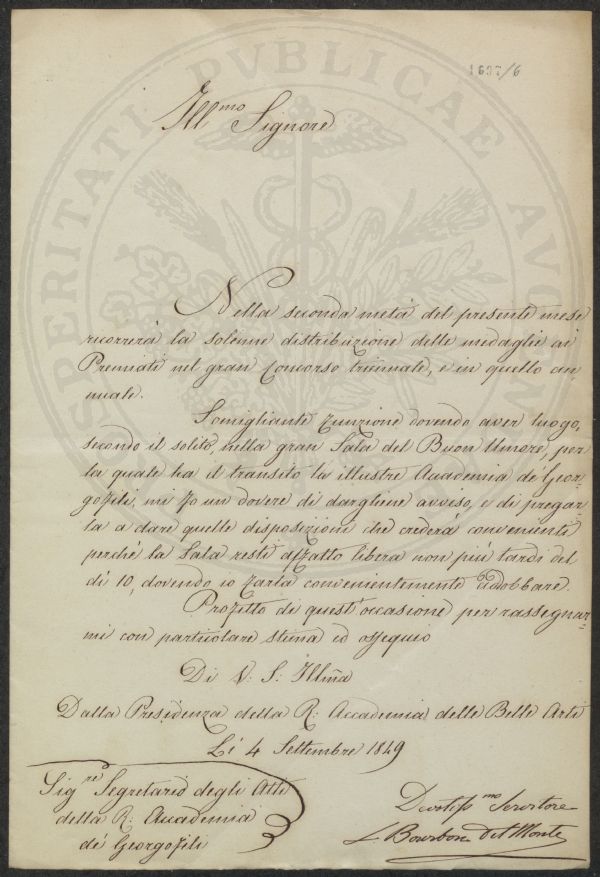 1697/6
Ill.mo Signore
Nella seconda metà del presente mese
ricorrerà la solenne distribuzione delle medaglie ai
Premiati nel gran Concorso triennale, e in quello an=
nuale.
Somigliante funzione dovendo aver luogo,
secondo il solito, nella gran Sala del Buon Umore, per
la quale ha il transito la illustre Accademia de' Geor=
gofili, mi fo un dovere di dargliene avviso, e di pregar=
la a dare quelle disposizioni che crederà convenienti
perchè la Sala resti affatto libera non più tardi del
dì 10, dovendo io farla convenientemente addobbare.
Profitto di quest'occasione per rassegnar=
mi con particolare stima ed ossequio
Di V: S: Illma
Dalla Presidenza della R: Accademia delle Belle Arti
Li 4 Settembre 1849
Sig.re Segretario degli Atti
della R: Accademia
de' Georgofili
Devotiss.mo Servitore
L Bourbon Del Monte
PROSPERITATI PVBLICAE AVGENDAE